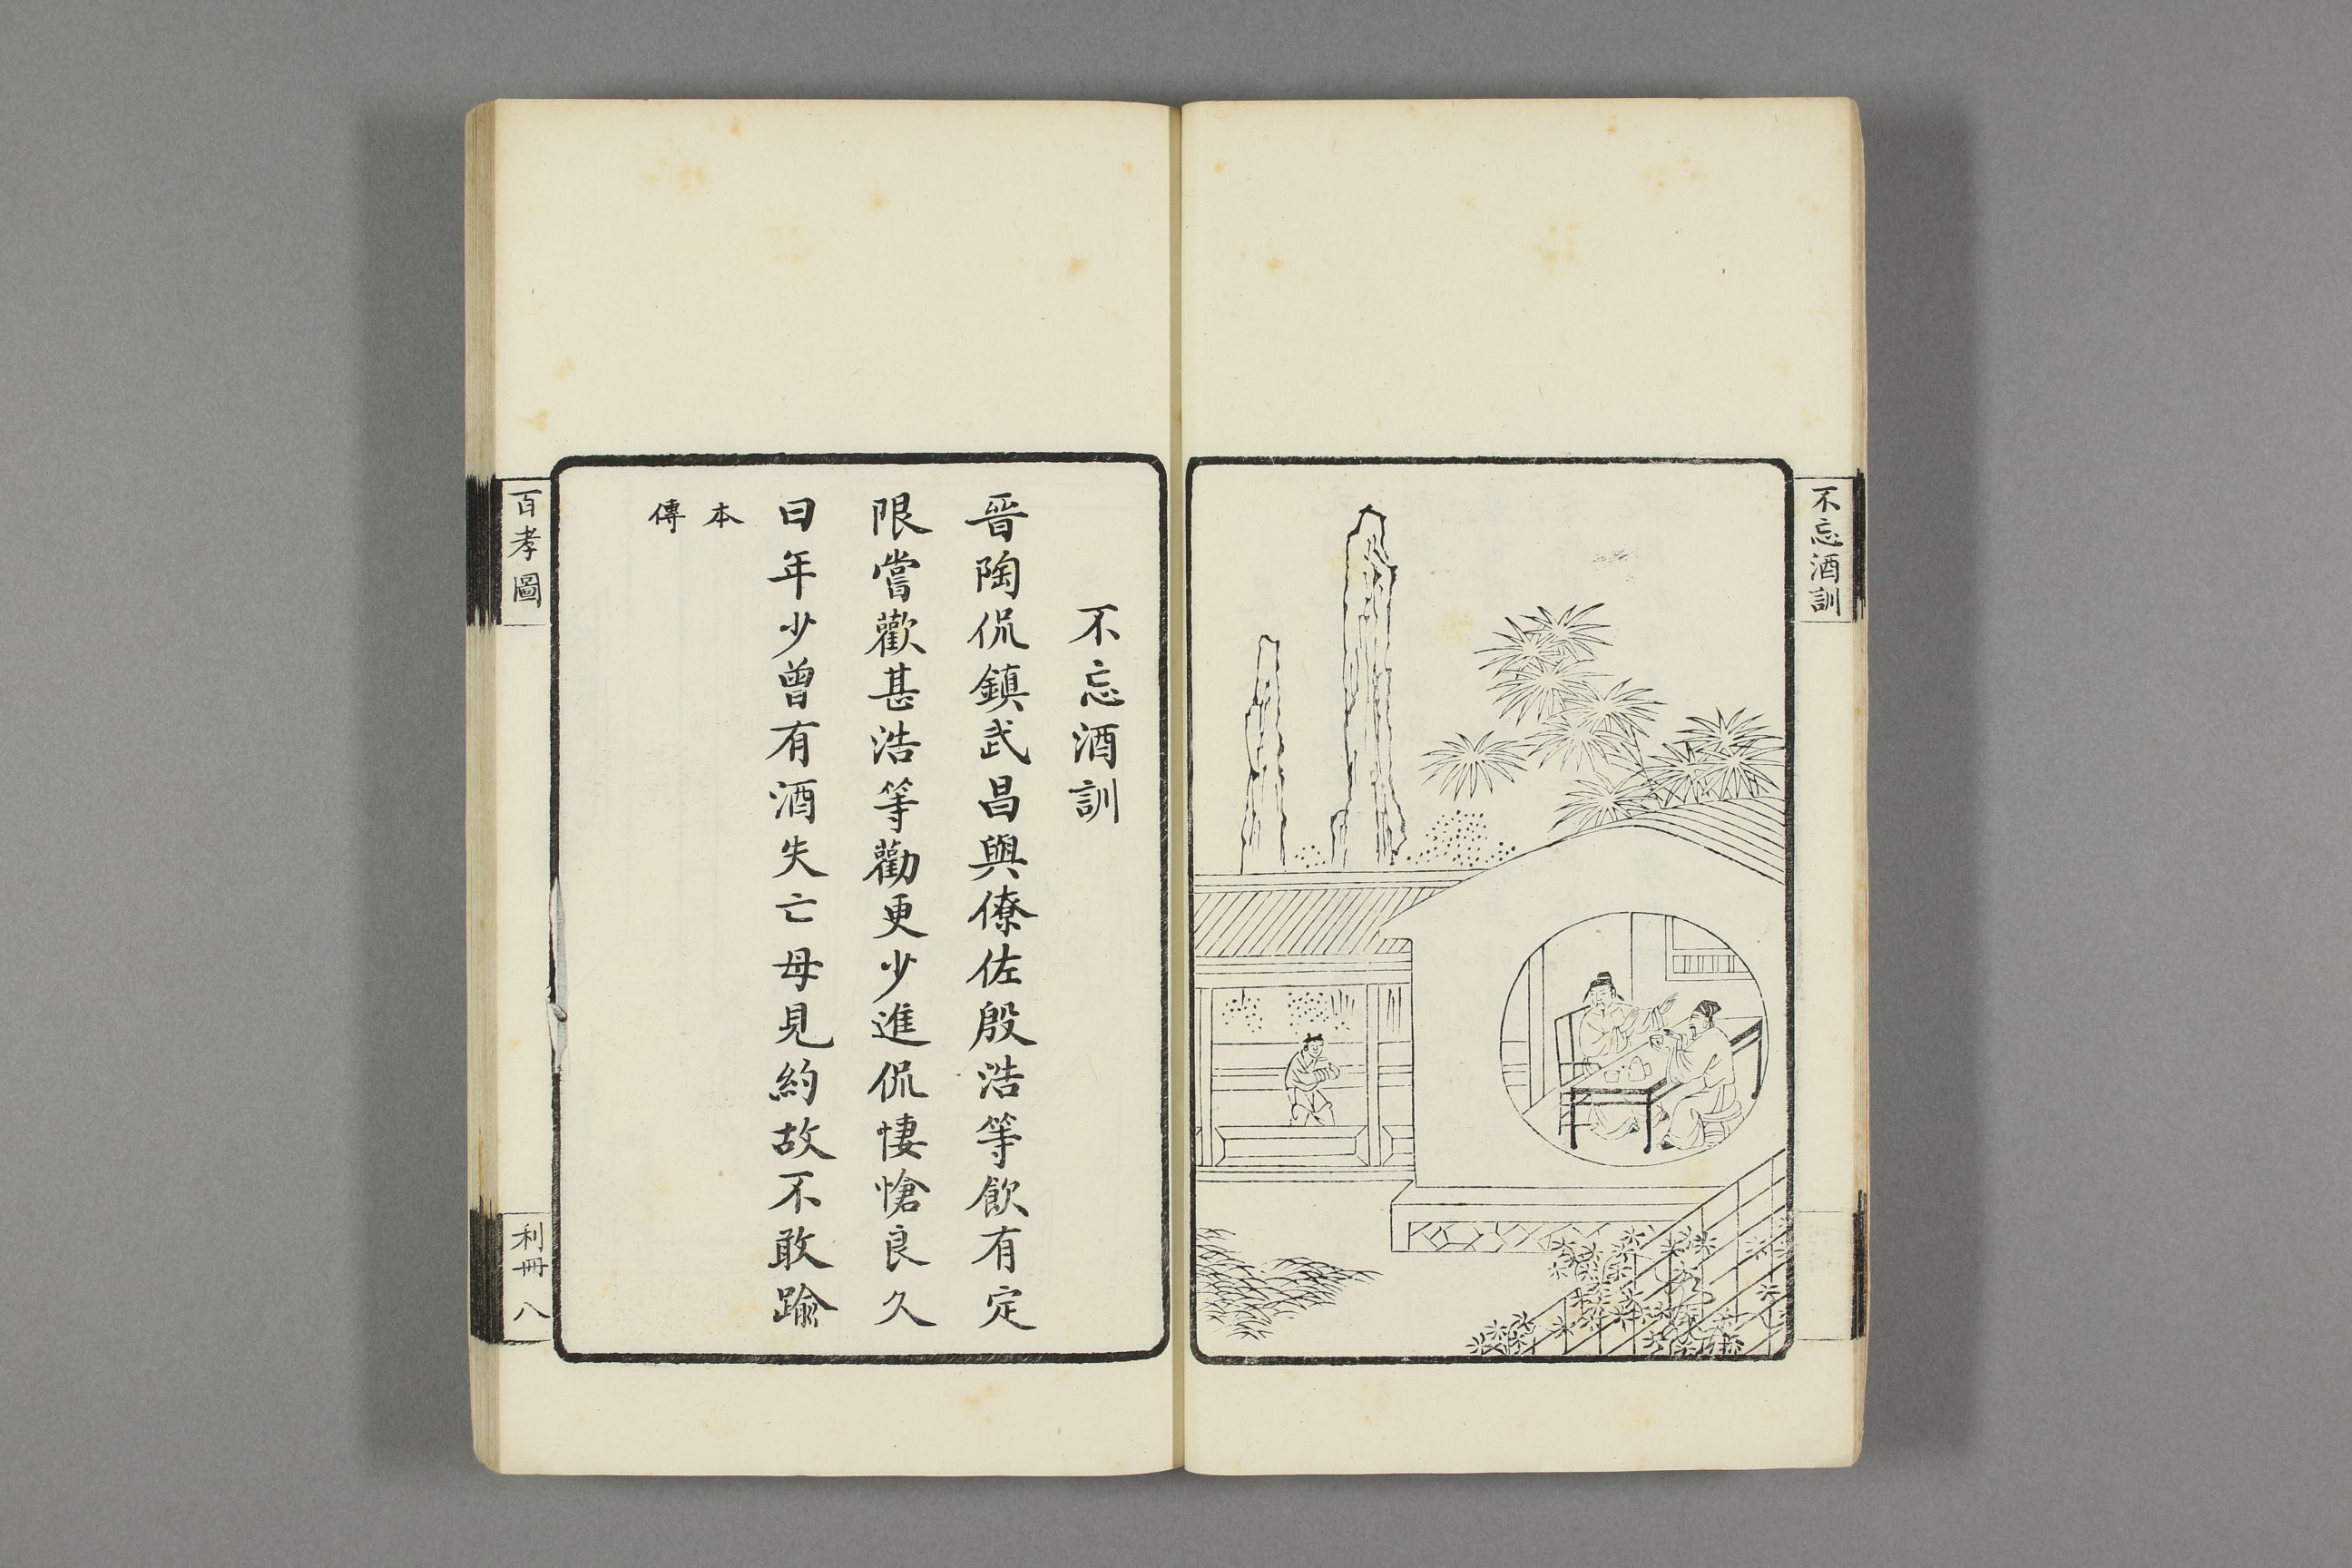 不忘酒訓
不忘酒訓
晉陶侃鎮武昌與僚佐殷浩等飲有定
限嘗歡甚浩等勸更少進侃悽愴良久
曰年少曾有酒失亡母見約故不敢踰
本
傳
百孝圖
利冊 八